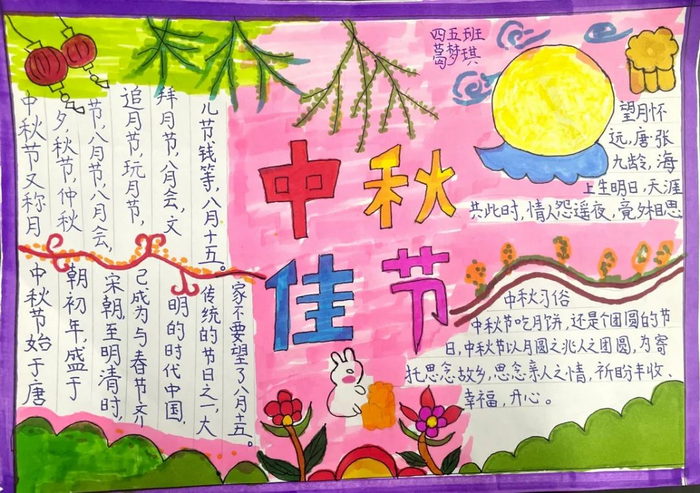 四五班
梦琪
中秋
佳节
中秋节又称月
夕,秋节,仲秋
节,八月节,八月会,
追月节,玩月节,
拜月节,八月会,文
儿节钱等,八月十五。
中秋节始于唐
朝初年,盛于
宋朝,至明清时,
己成为与春节齐
明的时代中国,
传统的节日之一,大
家不要望了八月十五。
望月怀
远,唐·张
九龄,海
上生明日,天涯
共此时,情人怨遥夜,竟外相思
中秋习俗
中秋节吃月饼,还是个团圆的节
日,中秋节以月圆之兆人之团圆,为寄
托思念故乡,思念亲人之情,祈盼丰收、
幸福,开心。